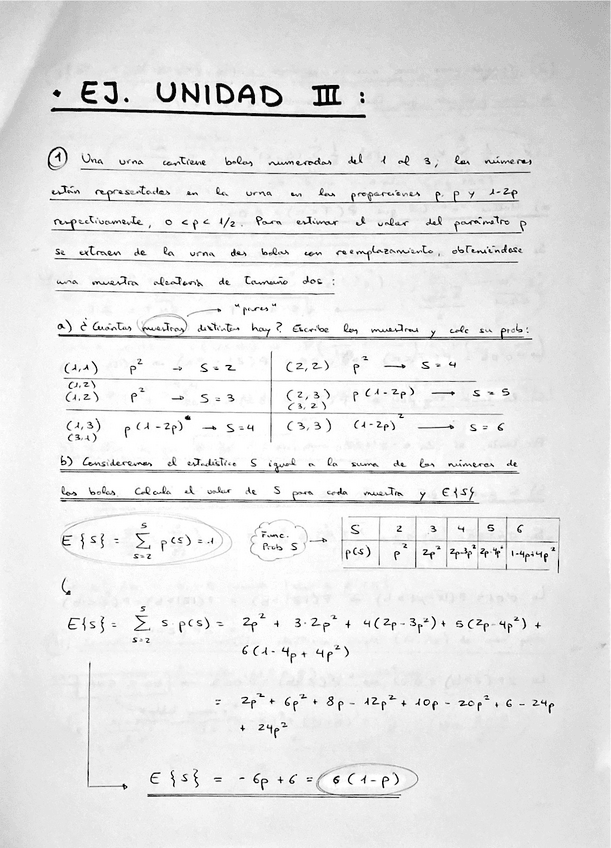 • EJ. UNIDAD III :
① Una urna contiene bolas numeradas del 1 al 3; los números
están representados en la urna en las proporciones p, p y 1-2p
respectivamente, 0 < p < 1/2. Para estimar el valor del parámetro p
se extraen de la urna dos bolas con reemplazamiento, obteniéndose
una muestra aleatoria de tamaño dos :
"pares"
a) ¿Cuántas muestras distintas hay? Escribe las muestras y calc su prob:
(1,1) p² → S = 2 (2,2) p² → S = 4
(1,2)
(1,2) p² → S = 3 (2,3) p (1-2p) → S = 5
(3,2)
(1,3) p (1-2p) → S=4 (3,3) (1-2p)² → S = 6
(3,1)
b) Consideremos el estadístico S igual a la suma de los números de
las bolas Calcula el valor de S para cada muestra y E{S}
E{S} = Σ p(s) = 1
S
S=2
Func. Prob S →
S 2 3 4 5 6
p(S) p² 2p² 2p-3p² 2p-4p² 1-4p+4p²
E{S} = Σ s p(s) = 2p² + 3·2p² + 4(2p-3p²) + 5(2p-4p²) +
S
S=2
6(1-4p+4p²)
= 2p² + 6p² + 8p - 12p² + 10p - 20p² + 6 - 24p
+ 24p²
E{S} = -6p + 6 = 6(1-p)